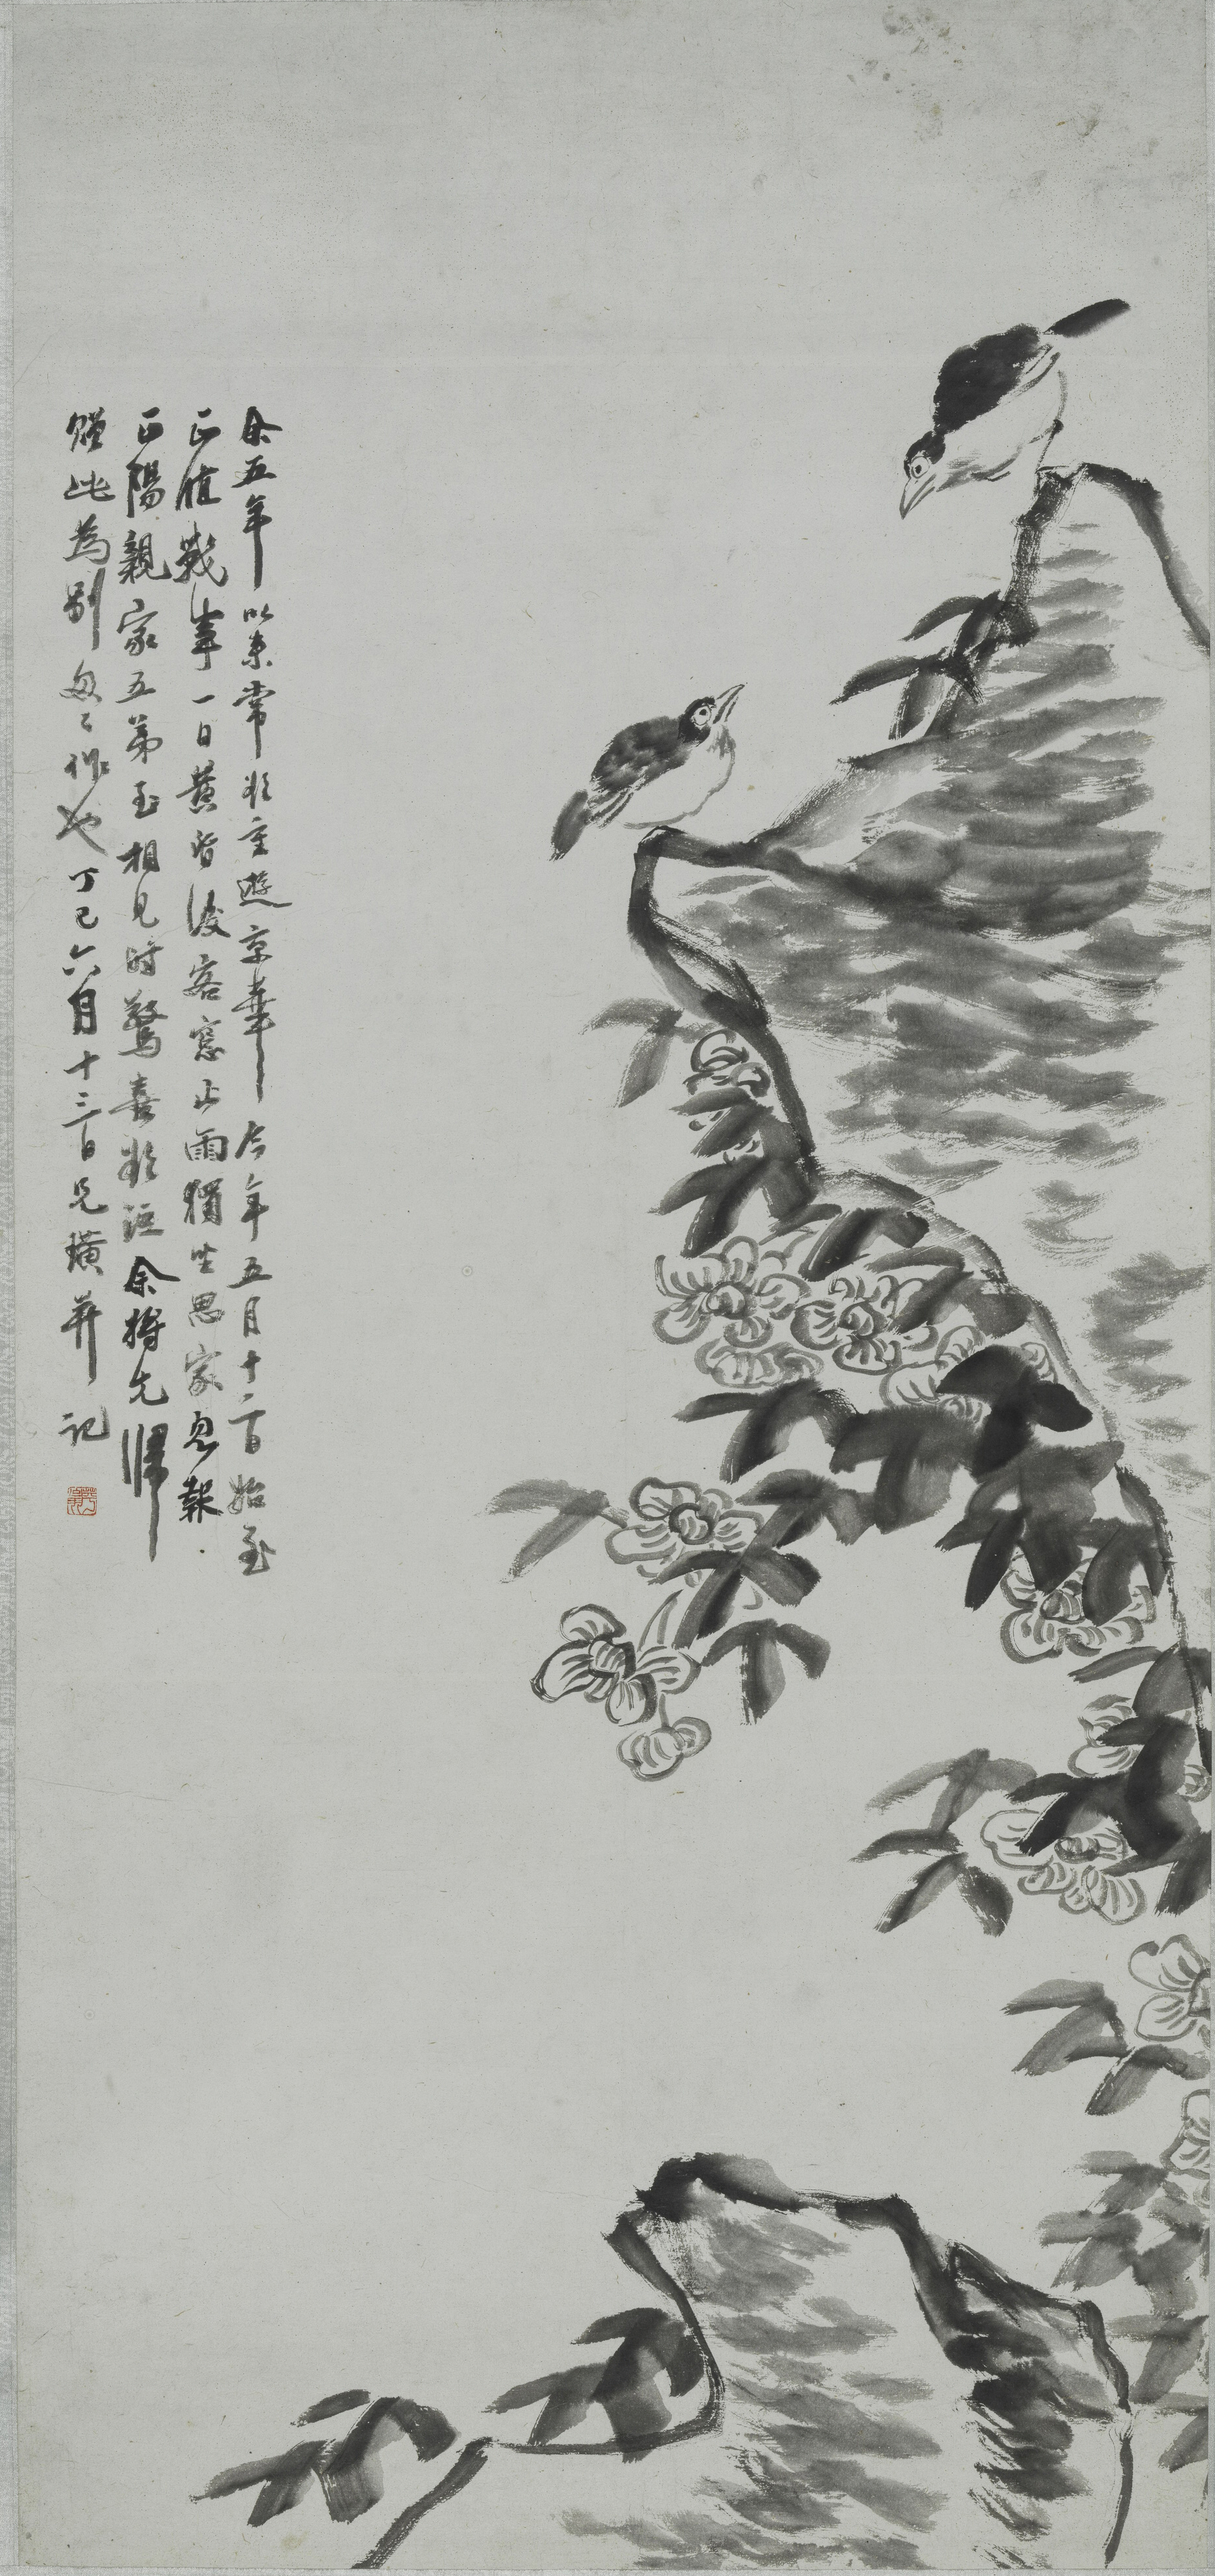 余五年以來常欲重遊京華今年五月十二日始至
正值戰事一日黃昏後客窗止雨獨坐思家忽報
正陽親家五弟至相見時驚喜欲泣余將先歸
贈此為別匆匆作也丁巳六月十三日兄璜并記